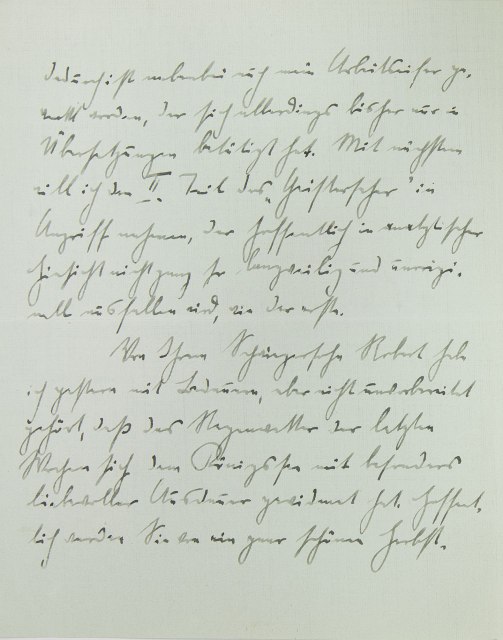 Dadurch ist nebenbei auch mein Arbeitseifer ge-
weckt worden, der sich allerdings bisher nur in
Übersetzungen betätigt hat. Mit nächstem
will ich den II. Teil des „Geistersehers" in
Angriff nehmen, der hoffentlich in analytischer
Hinsicht nicht ganz so langweilig und unorigi-
nell ausfallen wird, wie der erste.
Von Ihrem Schwiegersohn Robert habe
ich gestern mit Bedauern, aber nicht unvorbereitet
gehört, daß das Regenwetter der letzten
Wochen sich dem Königssee mit besonders
liebevoller Ausdauer gewidmet hat. Hoffent-
lich werden Sie von ein paar schönen Herbst-